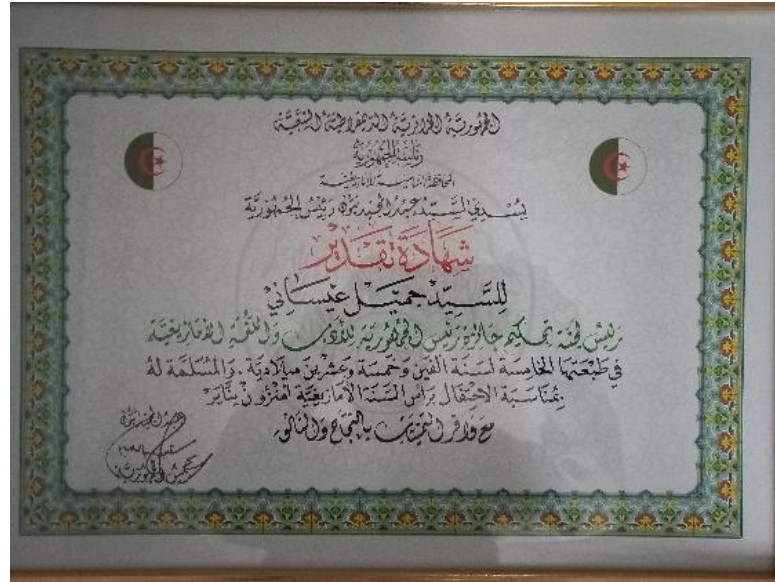 الجمهورية الجزائرية الديمقراطية الشعبية
رئاسة الجمهورية
المحافظة السامية للأمازيغية
يسدي السيد عبد المجيد تبون رئيس الجمهورية
شهادة تقدير
للسيد جميل عيساني
رئيس لجنة تحكيم جائزة رئيس الجمهورية للأدب واللغة الأمازيغية
في طبعتها الخامسة لسنة ألفين وخمسة وعشرين ميلادية، والمسلمة له
بمناسبة الاحتفال برأس السنة الأمازيغية أمنزو ن يناير
مع وافر التمنيات بالنجاح والتألق
عبد المجيد تبون